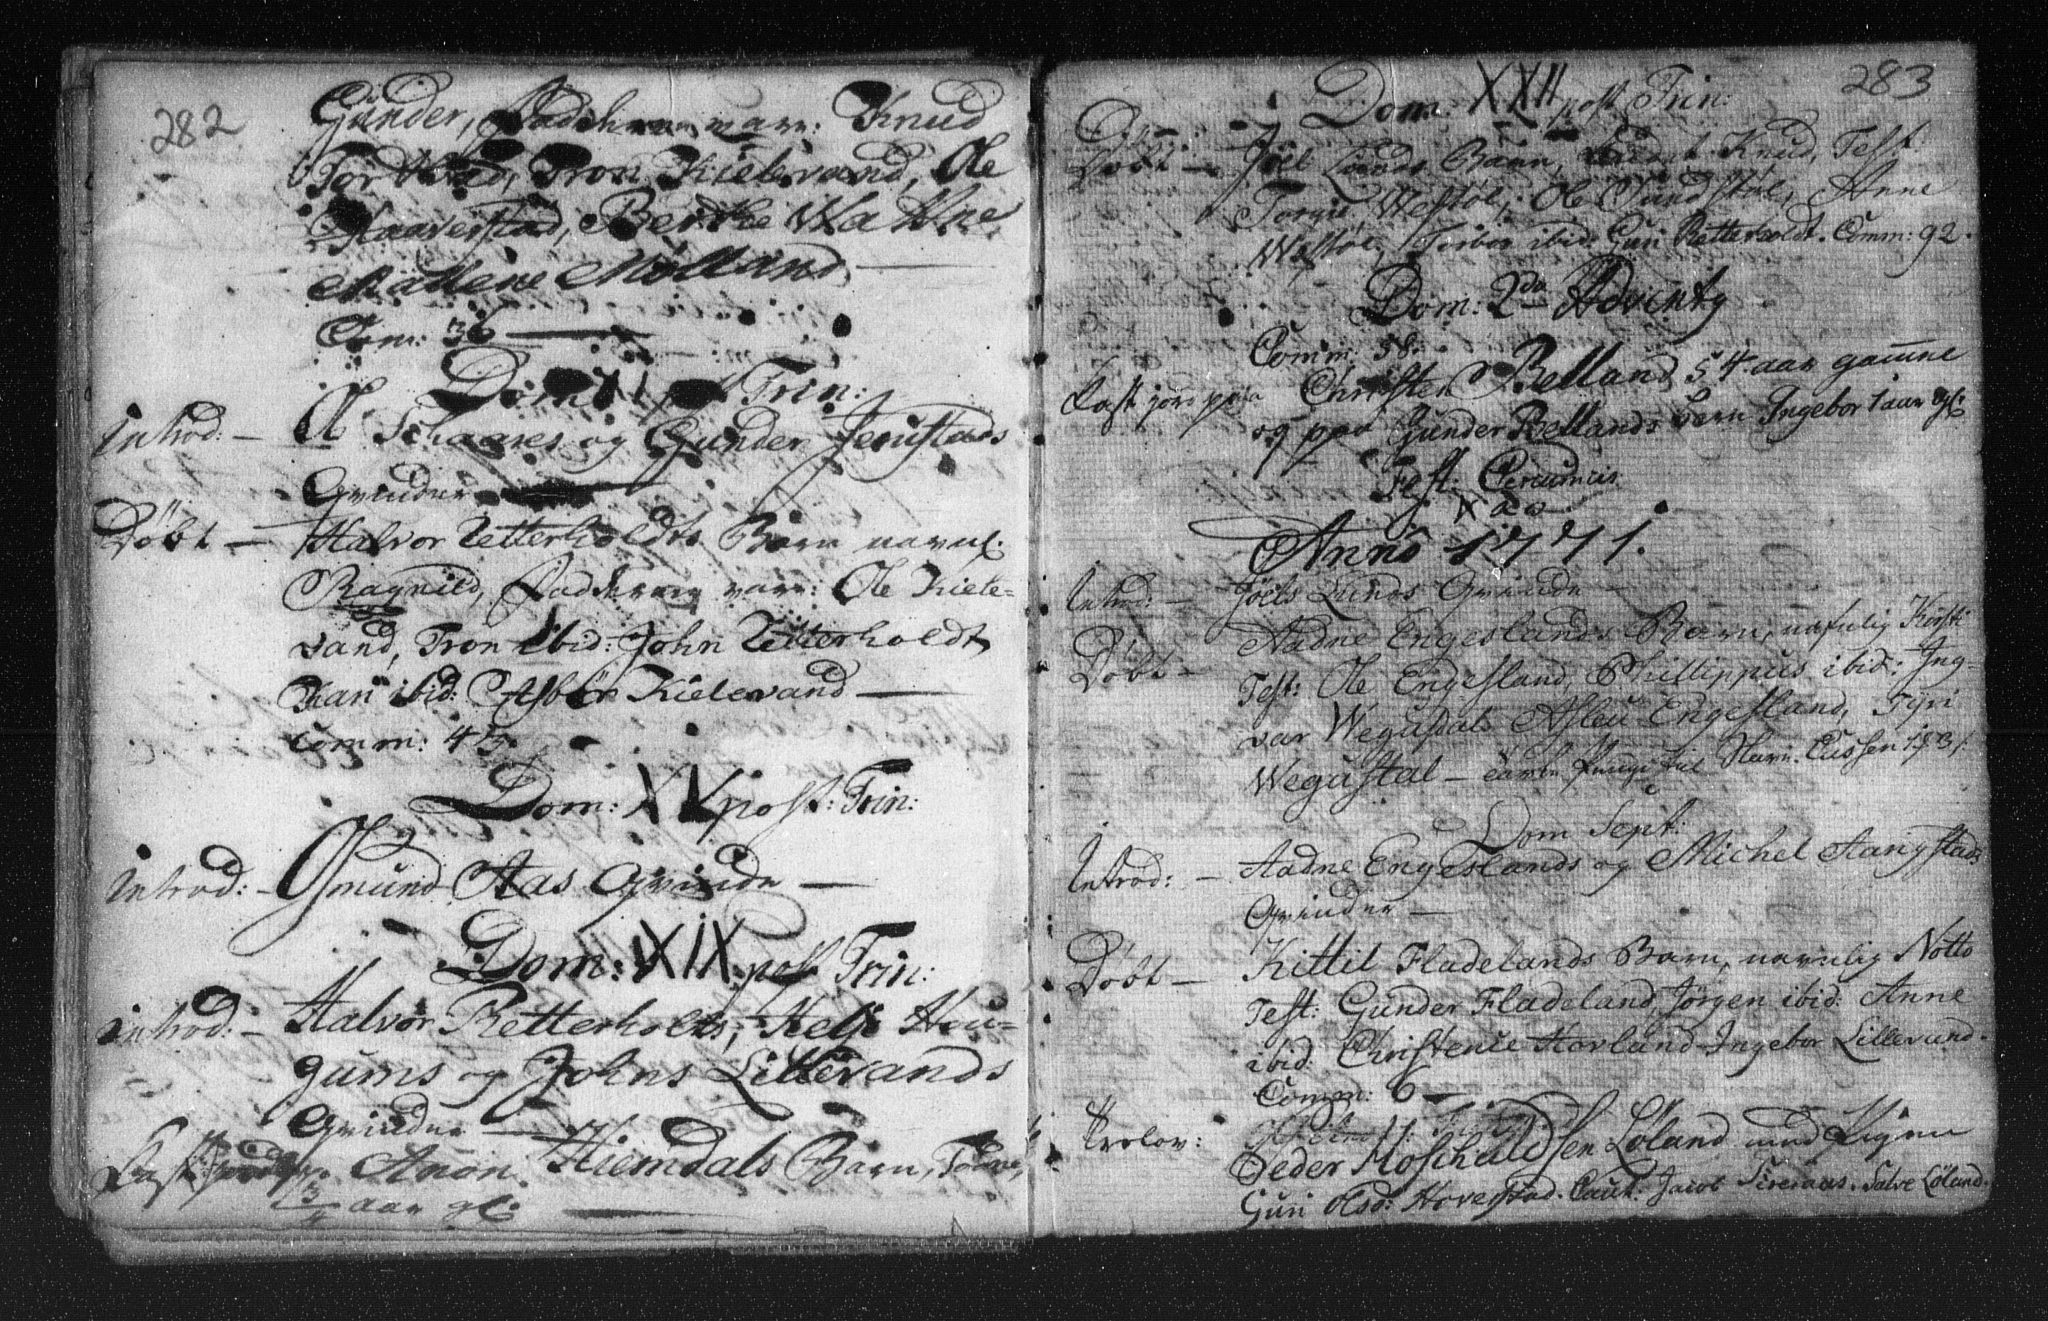 282
Gunder, Faddere var: Knud
Tron Kielevand, Ole
Haaverstad, Berthe Watne,
Mallene Mølland
Com: 36
Dom: post Trin:
introd: – Schaares og Gunder Jerustads
Qvinder
Døbt – Halvor Retterholdts Barn navnl.
Ragnild, Faddere var: Ole Kiele-
vand, Tron ibid: John Retterholdt
Kari ibid: Asbor Kielevand
Comm: 45.
Dom: XV post: Trin:
introd: – Osmund Aas Qvinde –
Dom: XIX post Trin:
introd: – Halvor Retterholts, Helje Hou-
gums og Johns Lillevands
Qvinder
Kast jord paa Anon Hiemdals Barn,
3/4 aar gl:
283
Dom: XXII post Trin:
Døbt – Joel Lunds Barn, Knud, Test:
Torgie Westøl, Ole Sundstøl, Anne
Westøl, Torbor ibid: Guri Retterholdt. Comm: 92.
Dom: 2da Adventg
Comm: 58.
Kast jord paa Christen Relland 54 aar gamne
og paa Gunder Rellands barn Ingebor 1 aar gl:
Fest: Circumcis
Anno 1771.
Introd: – Joels Lunds Qvinde –
Døbt – Aadne Engeslands Barn, nafnlig Kirsti
Test: Ole Engesland, Phillippus ibid: Ing-
var Wegusdal Asleu Engesland, Tyri
Wegustal –
Dom Sept:
Introd: – Aadne Engeslands og Michel Aarigstads
Qvinder –
Døbt – Kittil Fladelands Barn, navnlig Notto
Test: Gunder Fladeland, Jørgen ibid: Anne
ibid: Christense Hovland Ingebor Lillevand.
Comm: 6 –
Trolov: Peder Moschuldsen Løland med Pigen
Guri Olsd: Hoverstad. Caut: Jacob Salve Løland.